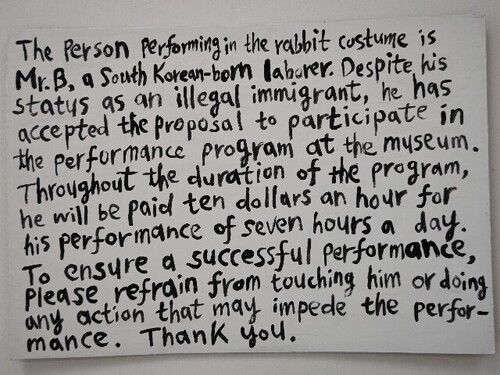 The Person Performing in the rabbit costume is
Mr. B, a South Korean-born laborer. Despite his
status as an illegal immigrant, he has
accepted the proposal to participate in
the performance program at the museum.
Throughout the duration of the program,
he will be paid ten dollars an hour for
his performance of seven hours a day.
To ensure a successful performance,
please refrain from touching him or doing
any action that may impede the perfor-
mance. Thank you.